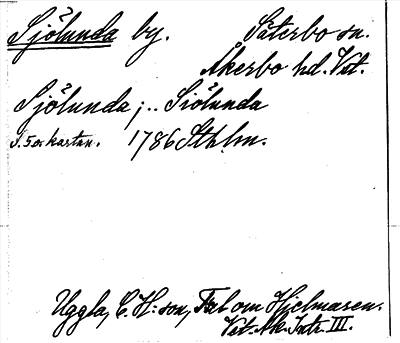 Sjölunda by. Säterbo sn.
Åkerbo hd. Vst.
Sjölunda; .. Siölunda
S. 5 o. kartan. 1786 Sthlm.
Uggla, C. H:son, Fxl om Hjelmaren.
Vet. Ak. Intr. III.